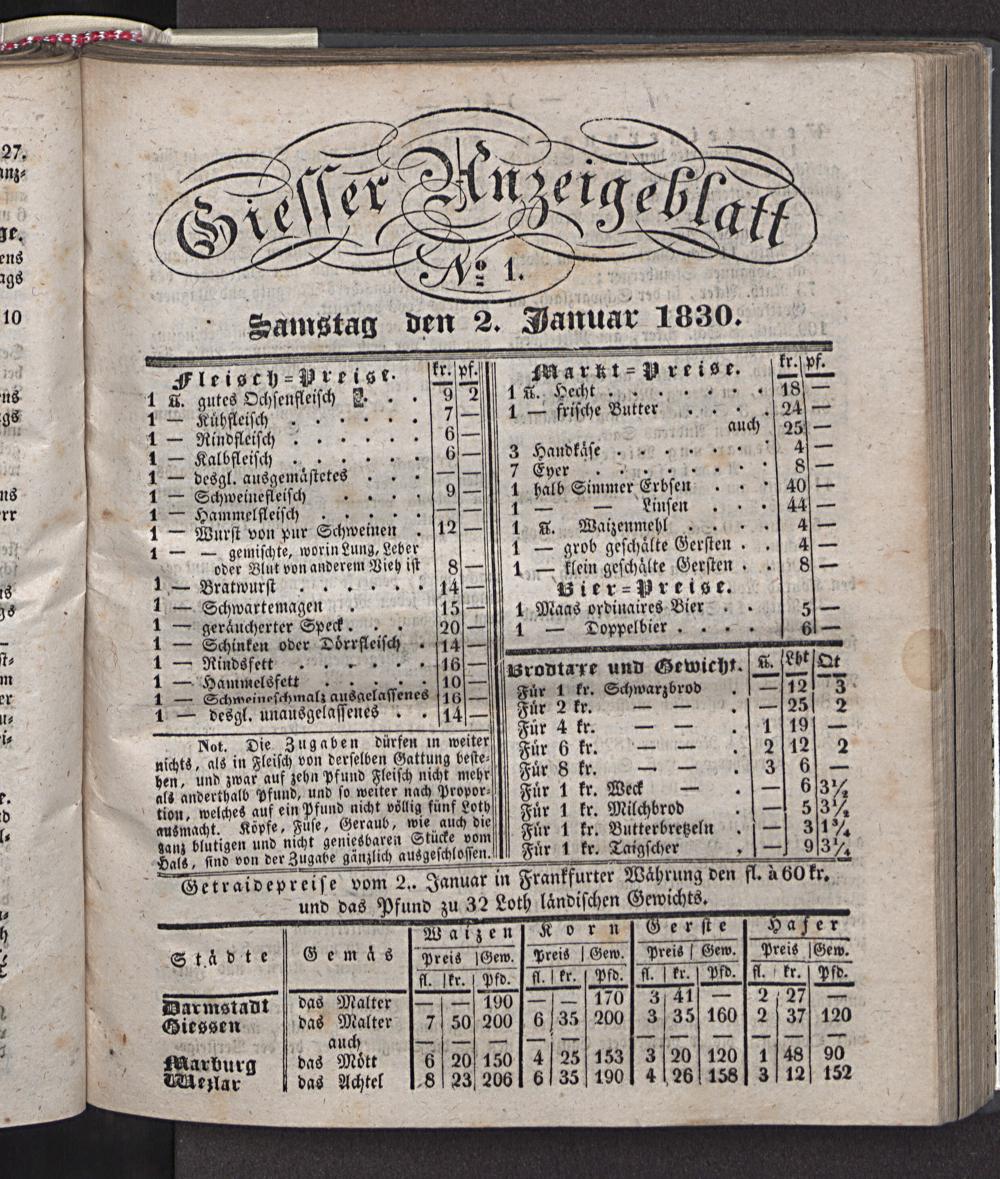 27.
anz⸗
ge.
ens
ags
10
Giesser Anzeigeblatt
No 1.
Samstag den 2. Januar 1830.
Fleisch⸗Preise. kr. pf.
1 ℔. gutes Ochsenfleisch . . . 9 2
1 — Kuhfleisch . . . . . . 7 —
1 — Rindfleisch . . . . . . 6 —
1 — Kalbfleisch . . . . . . 6 —
1 — desgl. ausgemästetes . . . — —
1 — Schweinefleisch . . . . 9 —
1 — Hammelfleisch . . . . . — —
1 — Wurst von pur Schweinen . 12 —
1 — — gemischte, worin Lung, Leber
oder Blut von anderem Vieh ist 8 —
1 — Bratwurst . . . . . . 14 —
1 — Schwartemagen . . . . . 15 —
1 — geräucherter Speck . . . 20 —
1 — Schinken oder Dörrfleisch . 14 —
1 — Rindsfett . . . . . . 16 —
1 — Hammelsfett . . . . . 10 —
1 — Schweineschmalz ausgelassenes 16 —
1 — desgl. unausgelassenes . . 14 —
Not. Die Zugaben dürfen in weiter
nichts, als in Fleisch von derselben Gattung beste⸗
hen, und zwar auf zehn Pfund Fleisch nicht mehr
als anderthalb Pfund, und so weiter nach Propor⸗
tion, welches auf ein Pfund nicht völlig fünf Loth
ausmacht. Köpfe, Füse, Geraub, wie auch die
ganz blutigen und nicht geniesbaren Stücke vom
Hals, sind von der Zugabe gänzlich ausgeschlossen.
Markt⸗Preise. kr. pf.
1 ℔. Hecht . . . . . . . 18 —
1 — frische Butter . . . . 24 —
auch 25 —
3 Handkäse . . . . . . . 4 —
7 Eyer . . . . . . . . 8 —
1 halb Simmer Erbsen . . . 40 —
1 — — Linsen . . . 44 —
1 ℔. Waizenmehl . . . . 4 —
1 — grob geschälte Gersten . . 4 —
1 — klein geschälte Gersten . . 8 —
Bier⸗Preise.
1 Maas ordinaires Bier . . . 5 —
1 — Doppelbier . . . . 6 —
Brodtaxe und Gewicht. ℔. Lht Qt
Für 1 kr. Schwarzbrod . — 12 3
Für 2 kr. — — . — 25 2
Für 4 kr. — — . 1 19 —
Für 6 kr. — — . 2 12 2
Für 8 kr. — — . 3 6 —
Für 1 kr. Weck — . — 6 3½
Für 1 kr. Milchbrod . — 5 3½
Für 1 kr. Butterbretzeln . — 3 1¾
Für 1 kr. Taigscher , — 9 3¼
Getraidepreise vom 2.. Januar in Frankfurter Währung den fl. à 60 kr.
und das Pfund zu 32 Loth ländischen Gewichts.
Städte Gemäs Waizen Korn Gerste Hafer
Preis Gew. Preis Gew. Preis Gew. Preis Gew.
fl. kr. Pfd. fl. kr. Pfd. fl. kr. Pfd. fl. kr. Pfd.
Darmstadt das Malter — — 190 — — 170 3 41 — 2 27 —
Giessen das Malter 7 50 200 6 35 200 3 35 160 2 37 120
auch — — — — — — — — — — — —
Marburg das Mött 6 20 150 4 25 153 3 20 120 1 48 90
Wezlar das Achtel 8 23 206 6 35 190 4 26 158 3 12 152